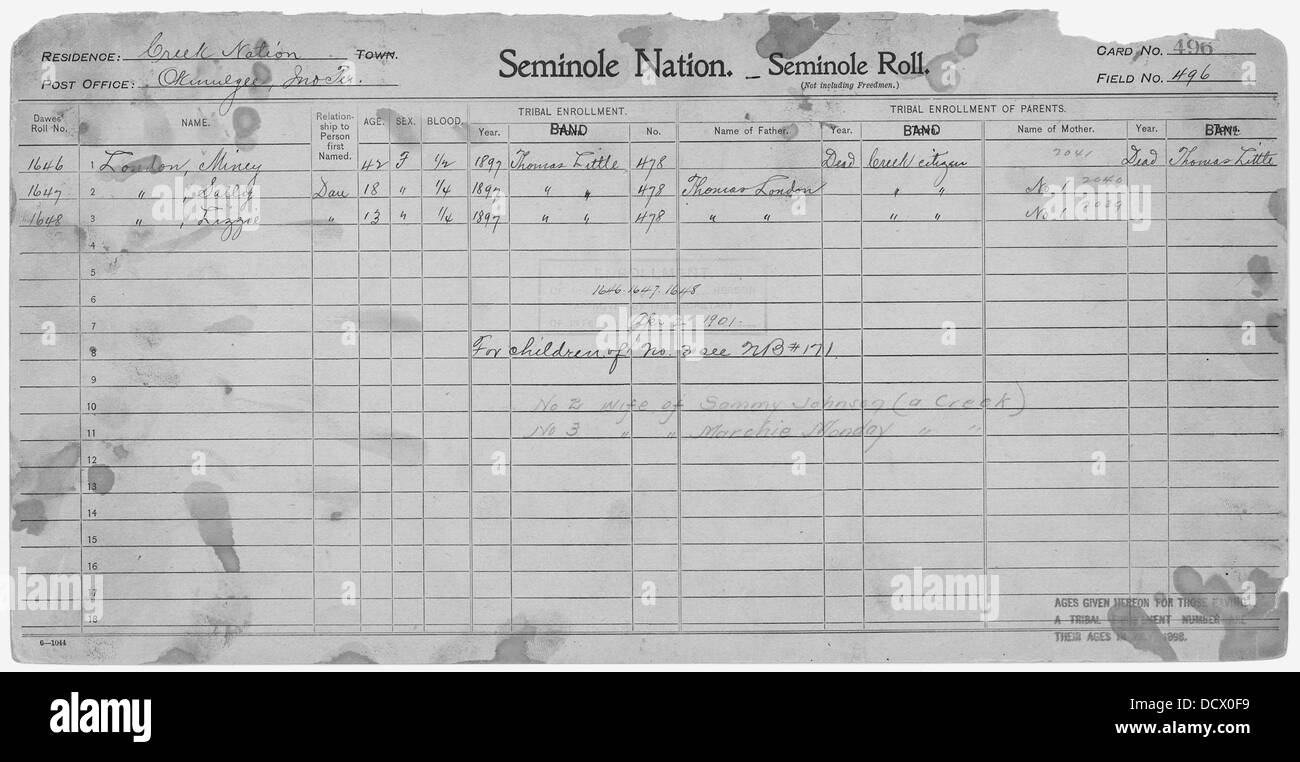 RESIDENCE: Creek Nation TOWN.
Seminole Nation. Seminole Roll.
CARD NO. 496
POST OFFICE: Okmulgee, Ind Ter.
(Not including Freedmen.)
FIELD NO. 496
Dawes' Roll No. NAME. Relation-ship to Person first Named. AGE. SEX. BLOOD. TRIBAL ENROLLMENT. TRIBAL ENROLLMENT OF PARENTS.
Year. BAND No. Name of Father. Year. BAND Name of Mother. Year. BAND
1646 1 London, Mincy 42 F 1/2 1897 Thomas Little 478 Dead Creek citizen 2041 Dead Thomas Little
1647 2 " , Sally Dau 18 " 1/4 1897 " " 478 Thomas London " " No. 1 2040
1648 3 " , Lizzie " 13 " 1/4 1897 " " 478 " " " " No. 1 2039
4
5
6 1646-1647-1648
7 1901.
8 For children of No. 3 see NB #171.
9
10 No 2 wife of Sammy Johnson (a Creek)
11 No 3 " " Marchie Monday " "
12
13
14
15
16
17
18
AGES GIVEN HEREON FOR THOSE HAVING
A TRIBAL ENROLLMENT NUMBER ARE
THEIR AGES 1898.
6—1044
alamy
alamy
alamy
alamy
a
a
a
a
alamy
Image ID: DCX0F9
www.alamy.com